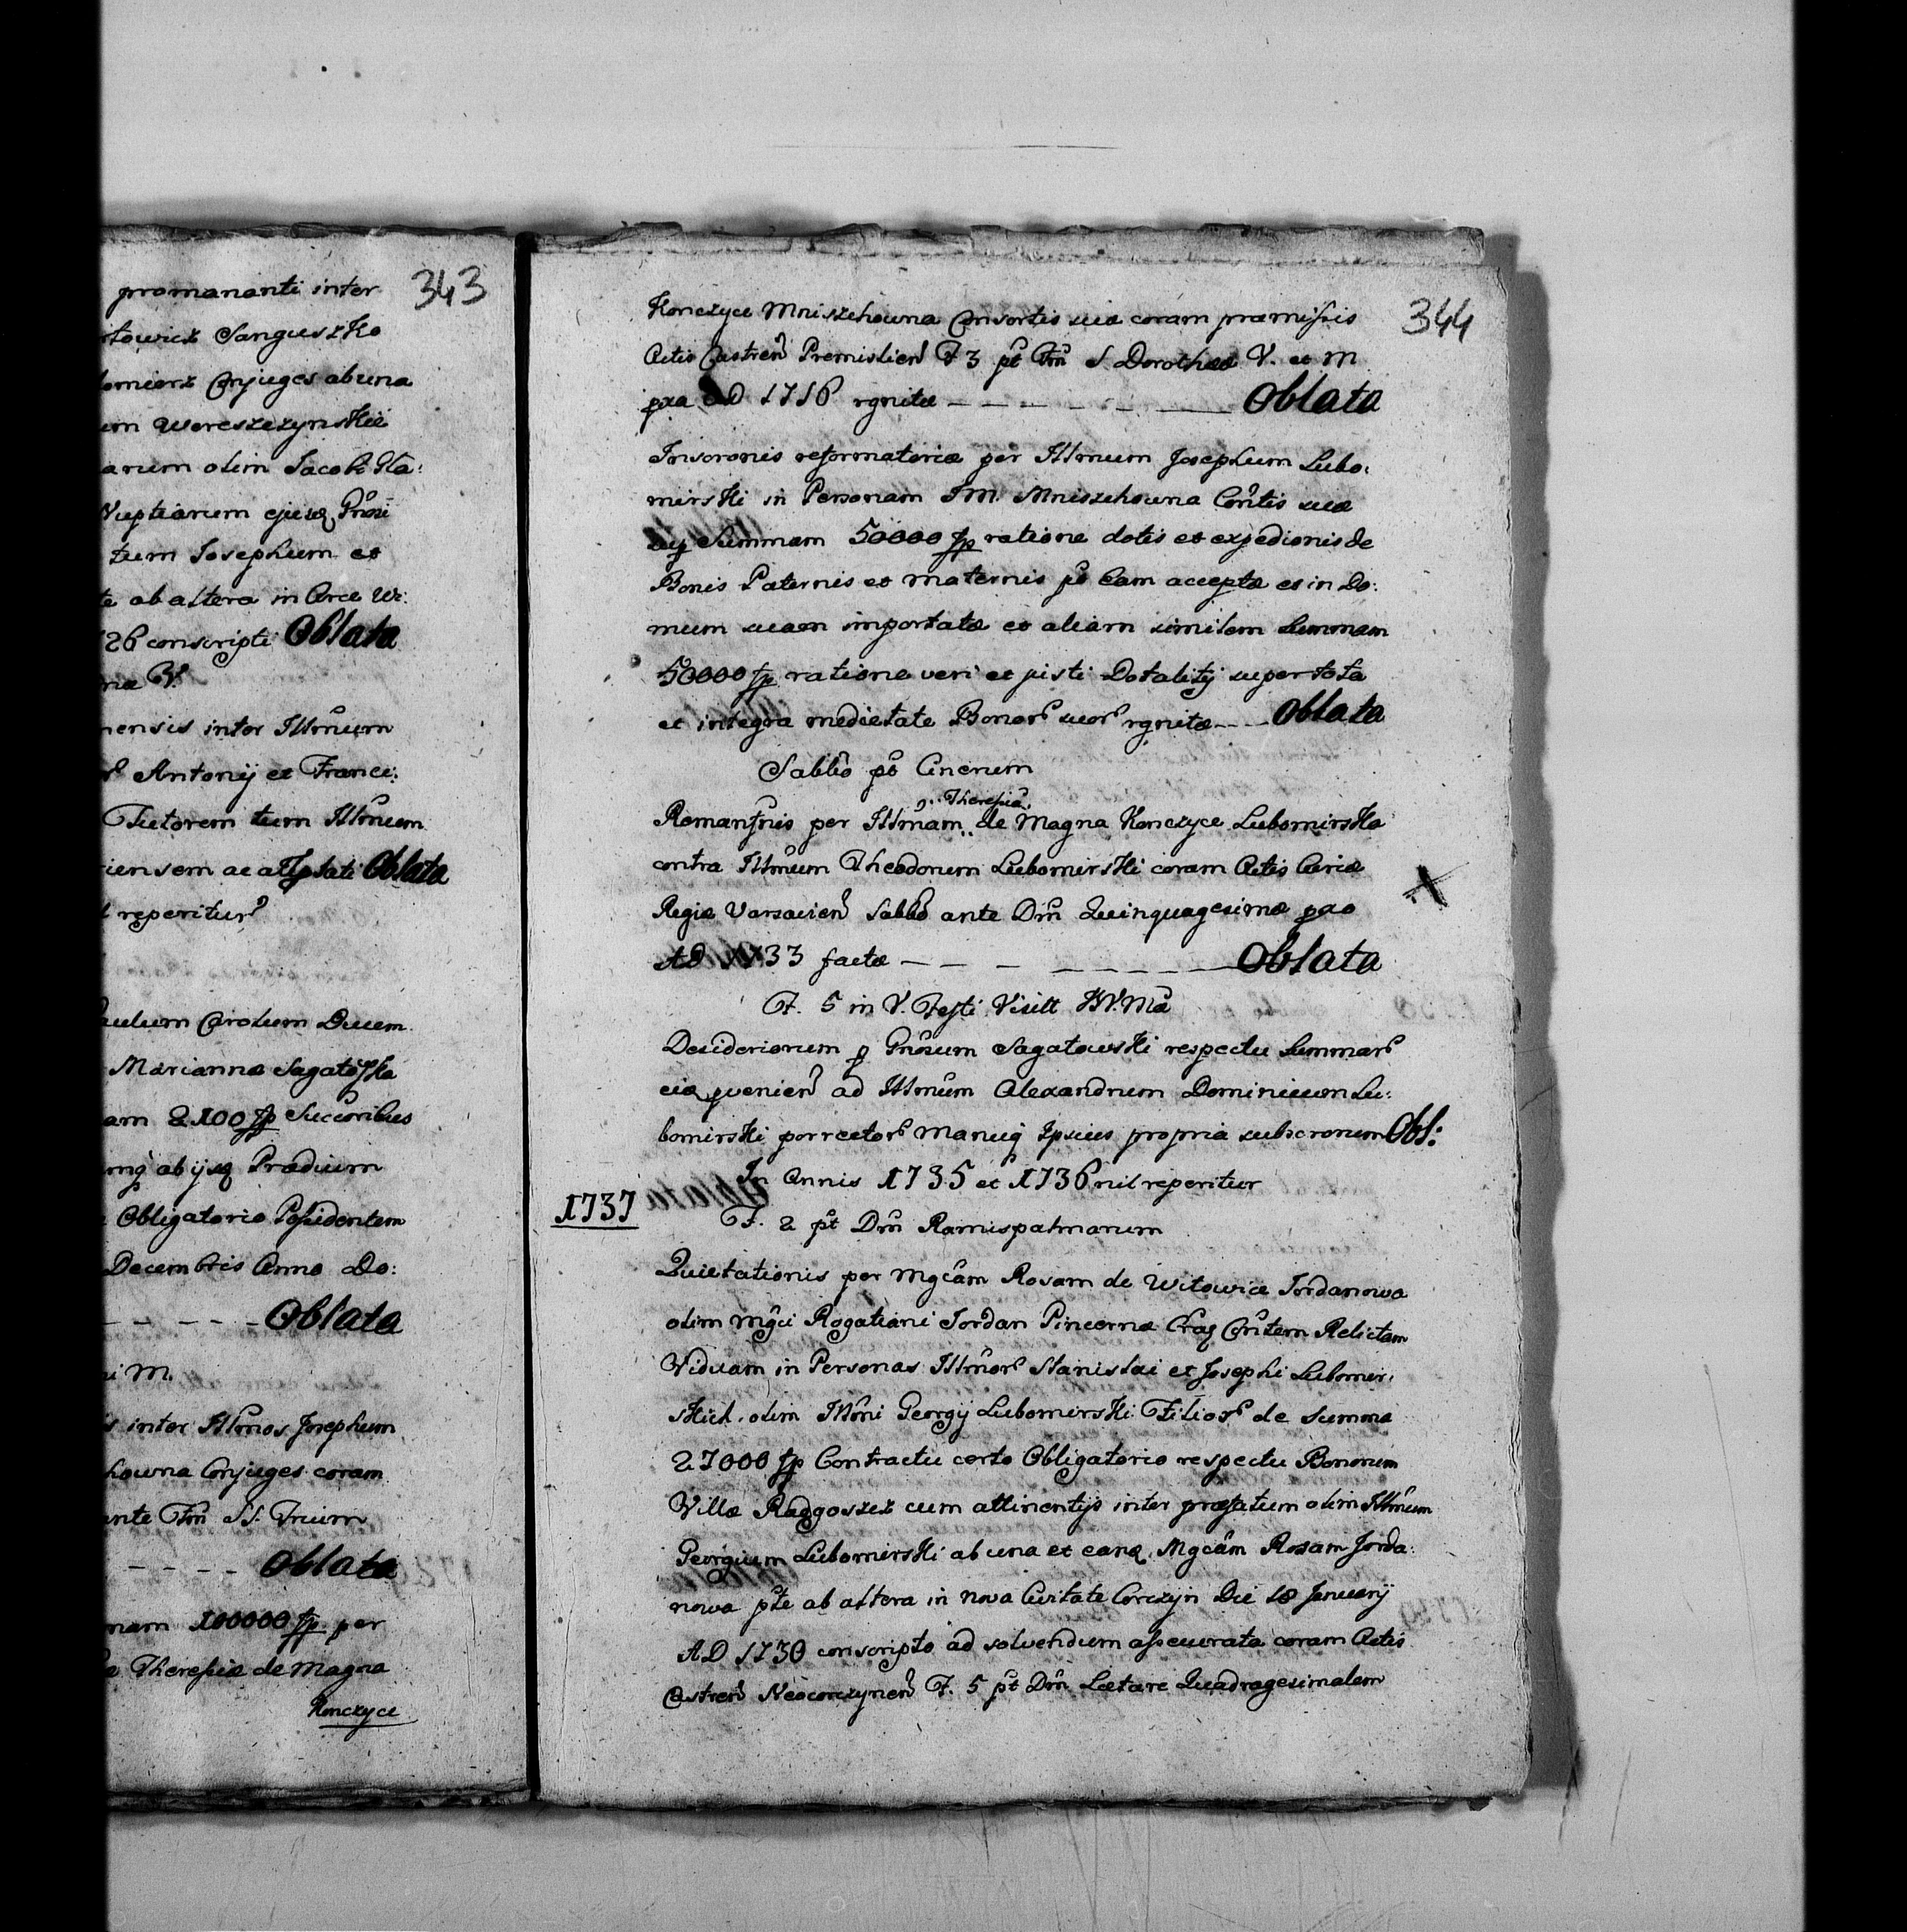 343
promananti inter
towicz Sanguszko
lomierz Conjuges ab una
um Woreszczynskie
arum olim Jacobi Sta:
Nuptiarum ejusq Gnosi
tum Josephum et
te ab altera in Arce Wi:
26 conscripti Oblata
næ V.
nensis inter Illmum
Antonij et Franci:
Tutorem tum Illmum
iensem ac Oblata
l reperitur
aulum Carolum Ducem
Marianna Sagatoska
am 2100 fp Succoribus
ab ijsq Prædium
Obligatorio Possidentem
Decembris Anno Do:
– – – – – Oblata
i M.
s inter Illmos Josephum
howna Conjuges coram
ante Fm SS. Trium
– – – – Oblata
mam 100000 fp per
Theresiæ de Magna
Konczyce
344
Konczyce Mniszchowna Consortis suæ coram præmissis
Actis Castren Premislien F 3 pt Fm S Dorotheæ V. et M
pxa AD 1716 rgnitæ – – – – – – Oblata
Inscronis reformatoriæ per Illmum Josephum Lubo:
mirski in Personam IM. Mniszchowna Contis suæ
Summam 50000 fp ratione dotis et expedionis de
Bonis Paternis et maternis p Eam acceptæ et in Do:
mum suam importatæ et aliam similem Summam
50000 fp ratione veri et justi Dotalitij super tota
et integra medietate Bonor suor rgnitæ – – Oblata
Sabbo pt Cinerum
Theresia
Remansnis per Illmam de Magna Konczyce Lubomirska
contra Illmum Theodorum Lubomirski coram Actis Curiæ
Regiæ Varsavien Sabbo ante Dm Quinquagesimæ pxo
AD 1733 factæ – – – – – – Oblata
F. 5 in V. Festi Visitt BV.Mæ
Desideriorum p Gnosum Sagatowski respectu Summar
eiq pvenien ad Illmum Alexandrum Dominicum Lu:
bomirski porrector manuq Ipsius propria subscronum Obl:
In Annis 1735 et 1736 nil reperitur
1737
F. 2 pt Dm Ramispalmarum
Quietationis per Mgcam Rosam de Witowice Jordanowa
olim Mgci Rogatiani Jordan Pincernæ Craq Contem Relictam
Viduam in Personas Illmor Stanislai et Josephi Lubomir:
skich olim Illmi Georgij Lubomirski Filior de Summa
27000 fp Contractu certo Obligatorio respectu Bonorum
Villæ Radgoszcz cum attinentijs inter præfatum olim Illmum
Georgium Lubomirski ab una et eanq Mgcam Rosam Jorda:
nowa pte ab altera in nova Civitate Corczyn Die 18 Januarij
AD 1730 conscripto ad solvendum assecurata coram Actis
Castren Neocorczynen F. 5 pt Dm Lætare Quadragesimalem